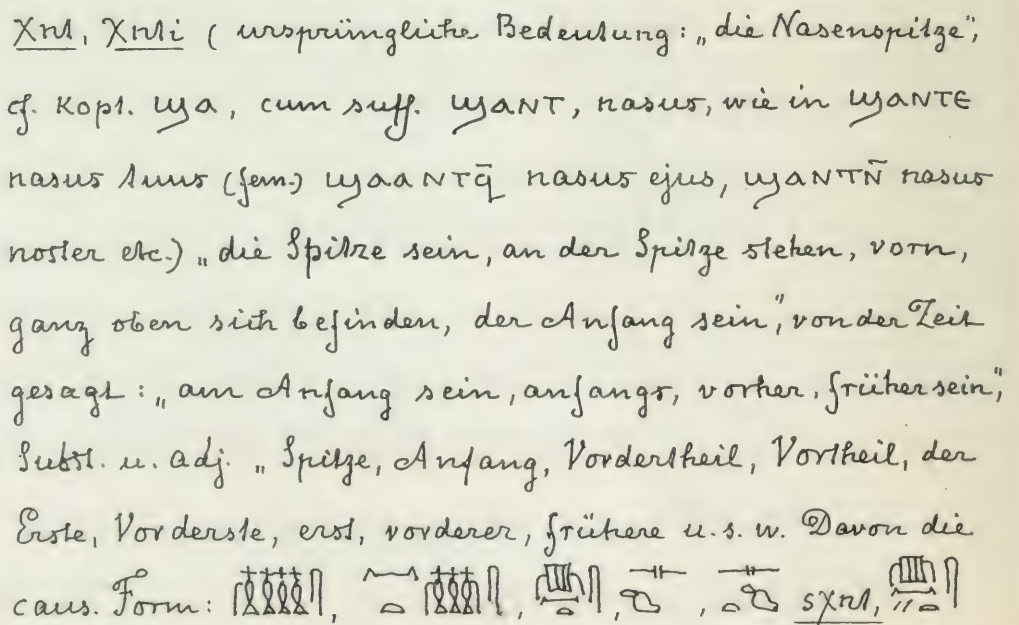 χnt, χnti (ursprüngliche Bedeutung: „die Nasenspitze",
cf. Kopt. ϣⲁ, cum suff. ϣⲁⲛⲧ, nasus, wie in ϣⲁⲛⲧⲉ
nasus tuus (fem.) ϣⲁⲁⲛⲧϥ̄ nasus ejus, ϣⲁⲛⲧⲛ̄ nasus
noster etc.) „die Spitze sein, an der Spitze stehen, vorn,
ganz oben sich befinden, der Anfang sein", von der Zeit
gesagt: „am Anfang sein, anfangs, vorher, früher sein",
Subst. u. adj. „Spitze, Anfang, Vordertheil, Vortheil, der
Erste, Vorderste, erst, vorderer, frühere u. s. w. Davon die
caus. Form: sχnt,